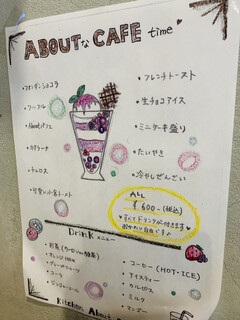 ABOUTな CAFE time
フォンダンショコラ
ワッフル
Aboutパフェ
カタラーナ
チュロス
フレンチトースト
生チョコアイス
ミニケーキ盛り
たいやき
冷やしぜんざい
ALL
¥600-(税込)
すべてドリンクが付きます
Drink メニュー
紅茶
オレンジ
グレープフルーツ
コーラ
ジンジャーエール
コーヒー (HOT・ICE)
アイスティー
カルピス
ミルク
マンゴー
Kitchen About